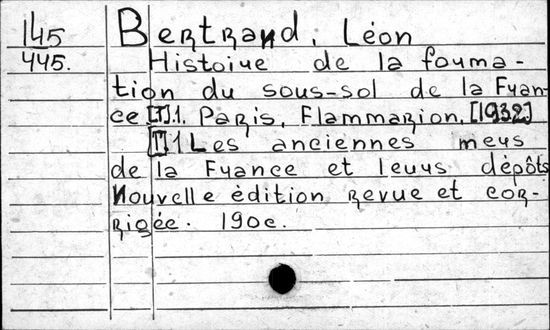 145
445.
Bertrand, Léon
Histoire de la forma-
tion du sous-sol de la Fran-
ce [T] 1. Paris, Flammarion, [1932]
[T] 1 Les anciennes mers
de la France et leurs dépôts
Nouvelle édition revue et cor-
rigée. 190c.